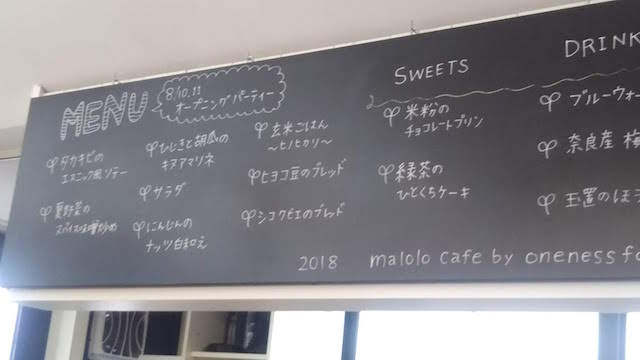 MENU
8/10.11
オープニングパーティー
タカキビの
エスニック風ソテー
夏野菜の
スパイス味噌炒め
ひじきと胡瓜の
キヌアマリネ
サラダ
にんじんの
ナッツ白和え
玄米ごはん
〜ヒノヒカリ〜
ヒヨコ豆のブレッド
シコクビエのブレッド
SWEETS
米粉の
チョコレートプリン
緑茶の
ひとくちケーキ
DRINK
ブルーウォー
奈良産 梅
玉置のほう
2018 malolo cafe by oneness fo